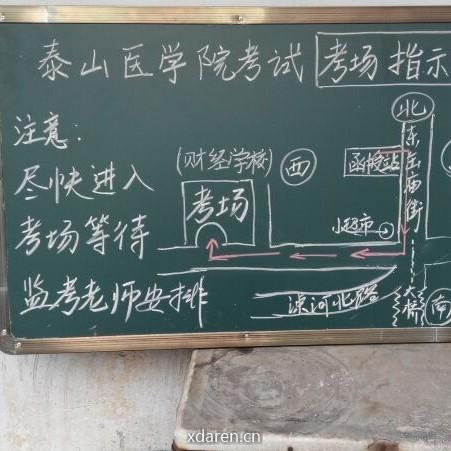 泰山医学院考试 考场指示
注意：
尽快进入
考场等待
监考老师安排
(财经学校)
考场
西
北
东岳庙街
函授站
小超市
涑河北路
大桥
南
xdaren.cn